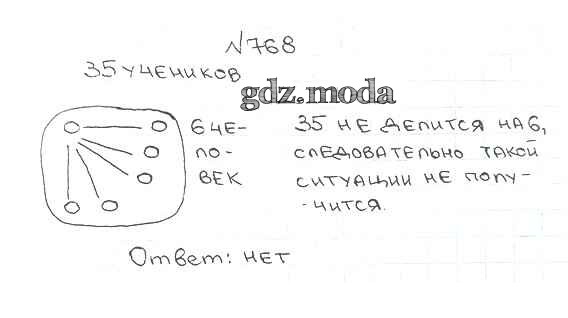 №768
35 УЧЕНИКОВ
gdz.moda
6 ЧЕ-
ЛО-
ВЕК
35 НЕ ДЕЛИТСЯ НА 6,
СЛЕДОВАТЕЛЬНО ТАКОЙ
СИТУАЦИИ НЕ ПОЛУ-
-ЧИТСЯ.
Ответ: НЕТ